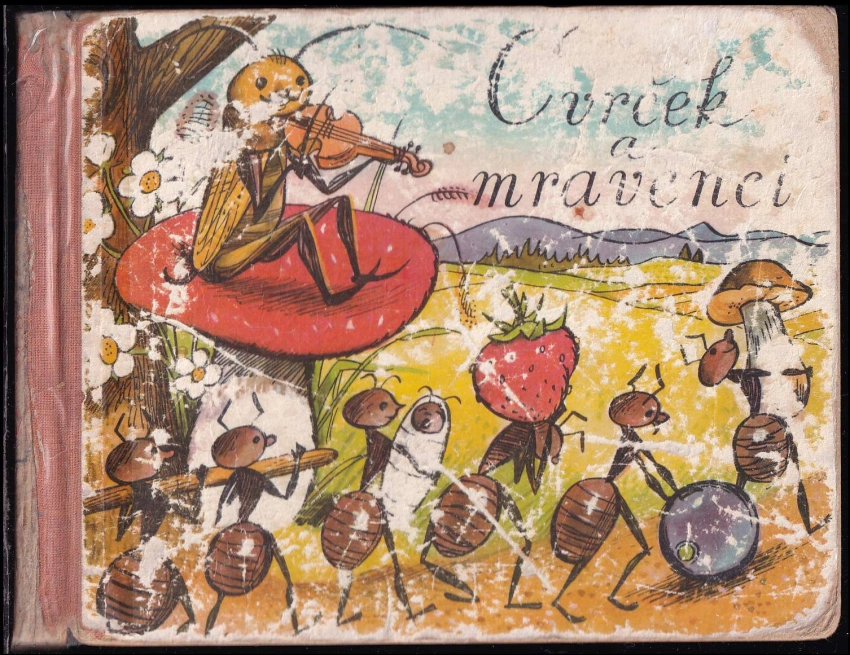 Cvrček
a
mravenci